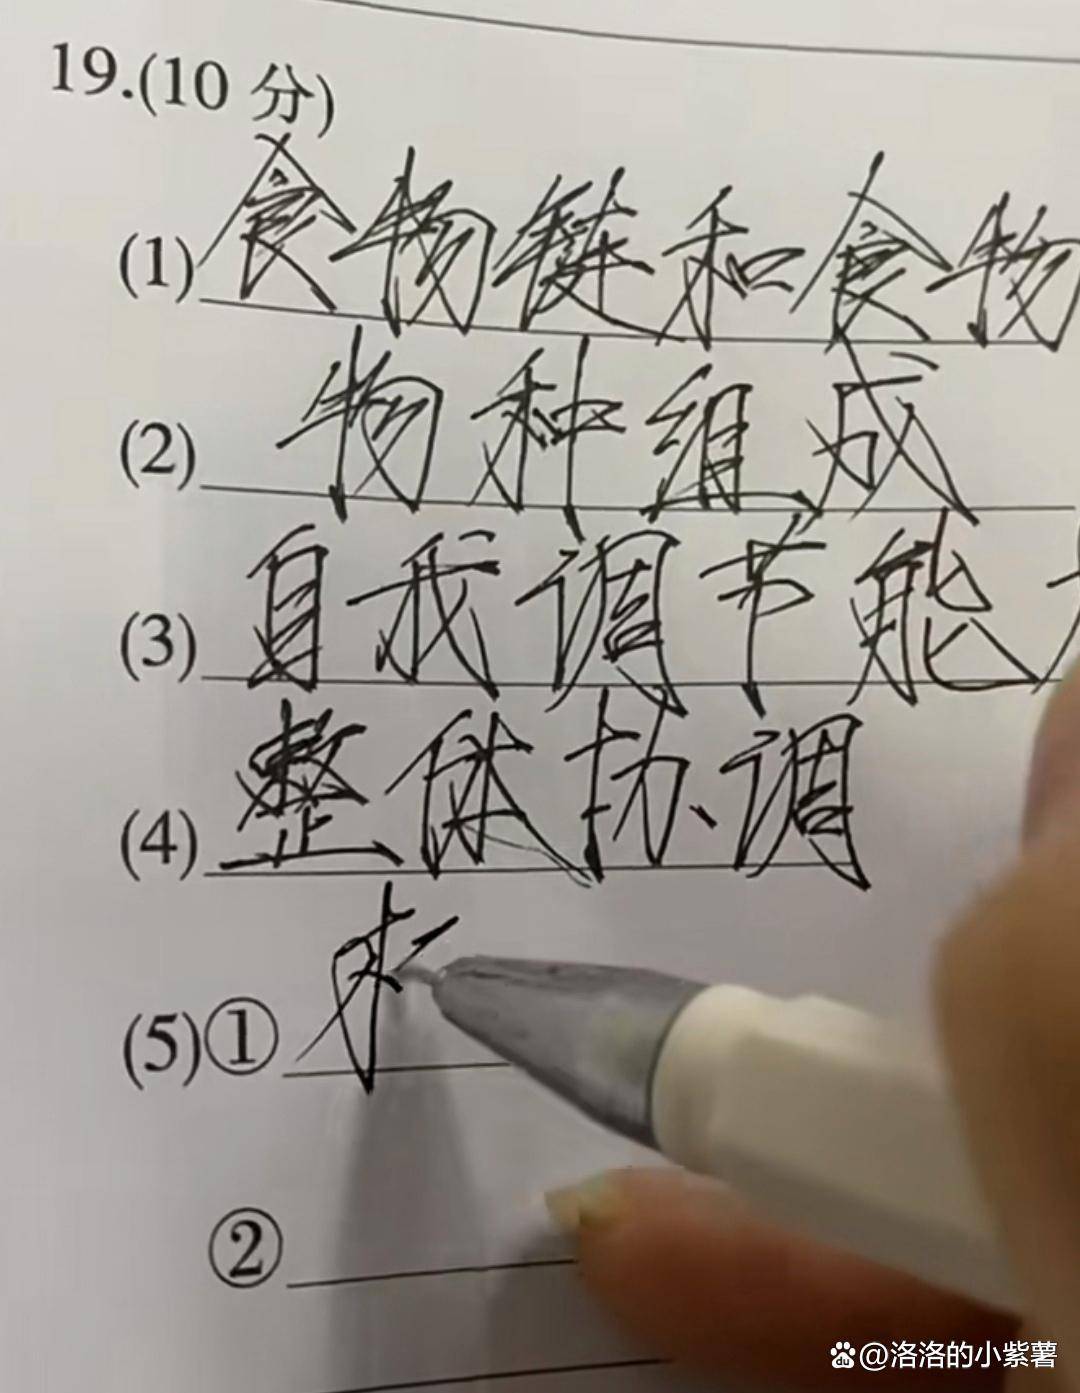 19.(10 分)
(1) 食物链和食物
(2) 物种组成
(3) 自我调节能
(4) 整体协调
(5)①
②
@洛洛的小紫薯